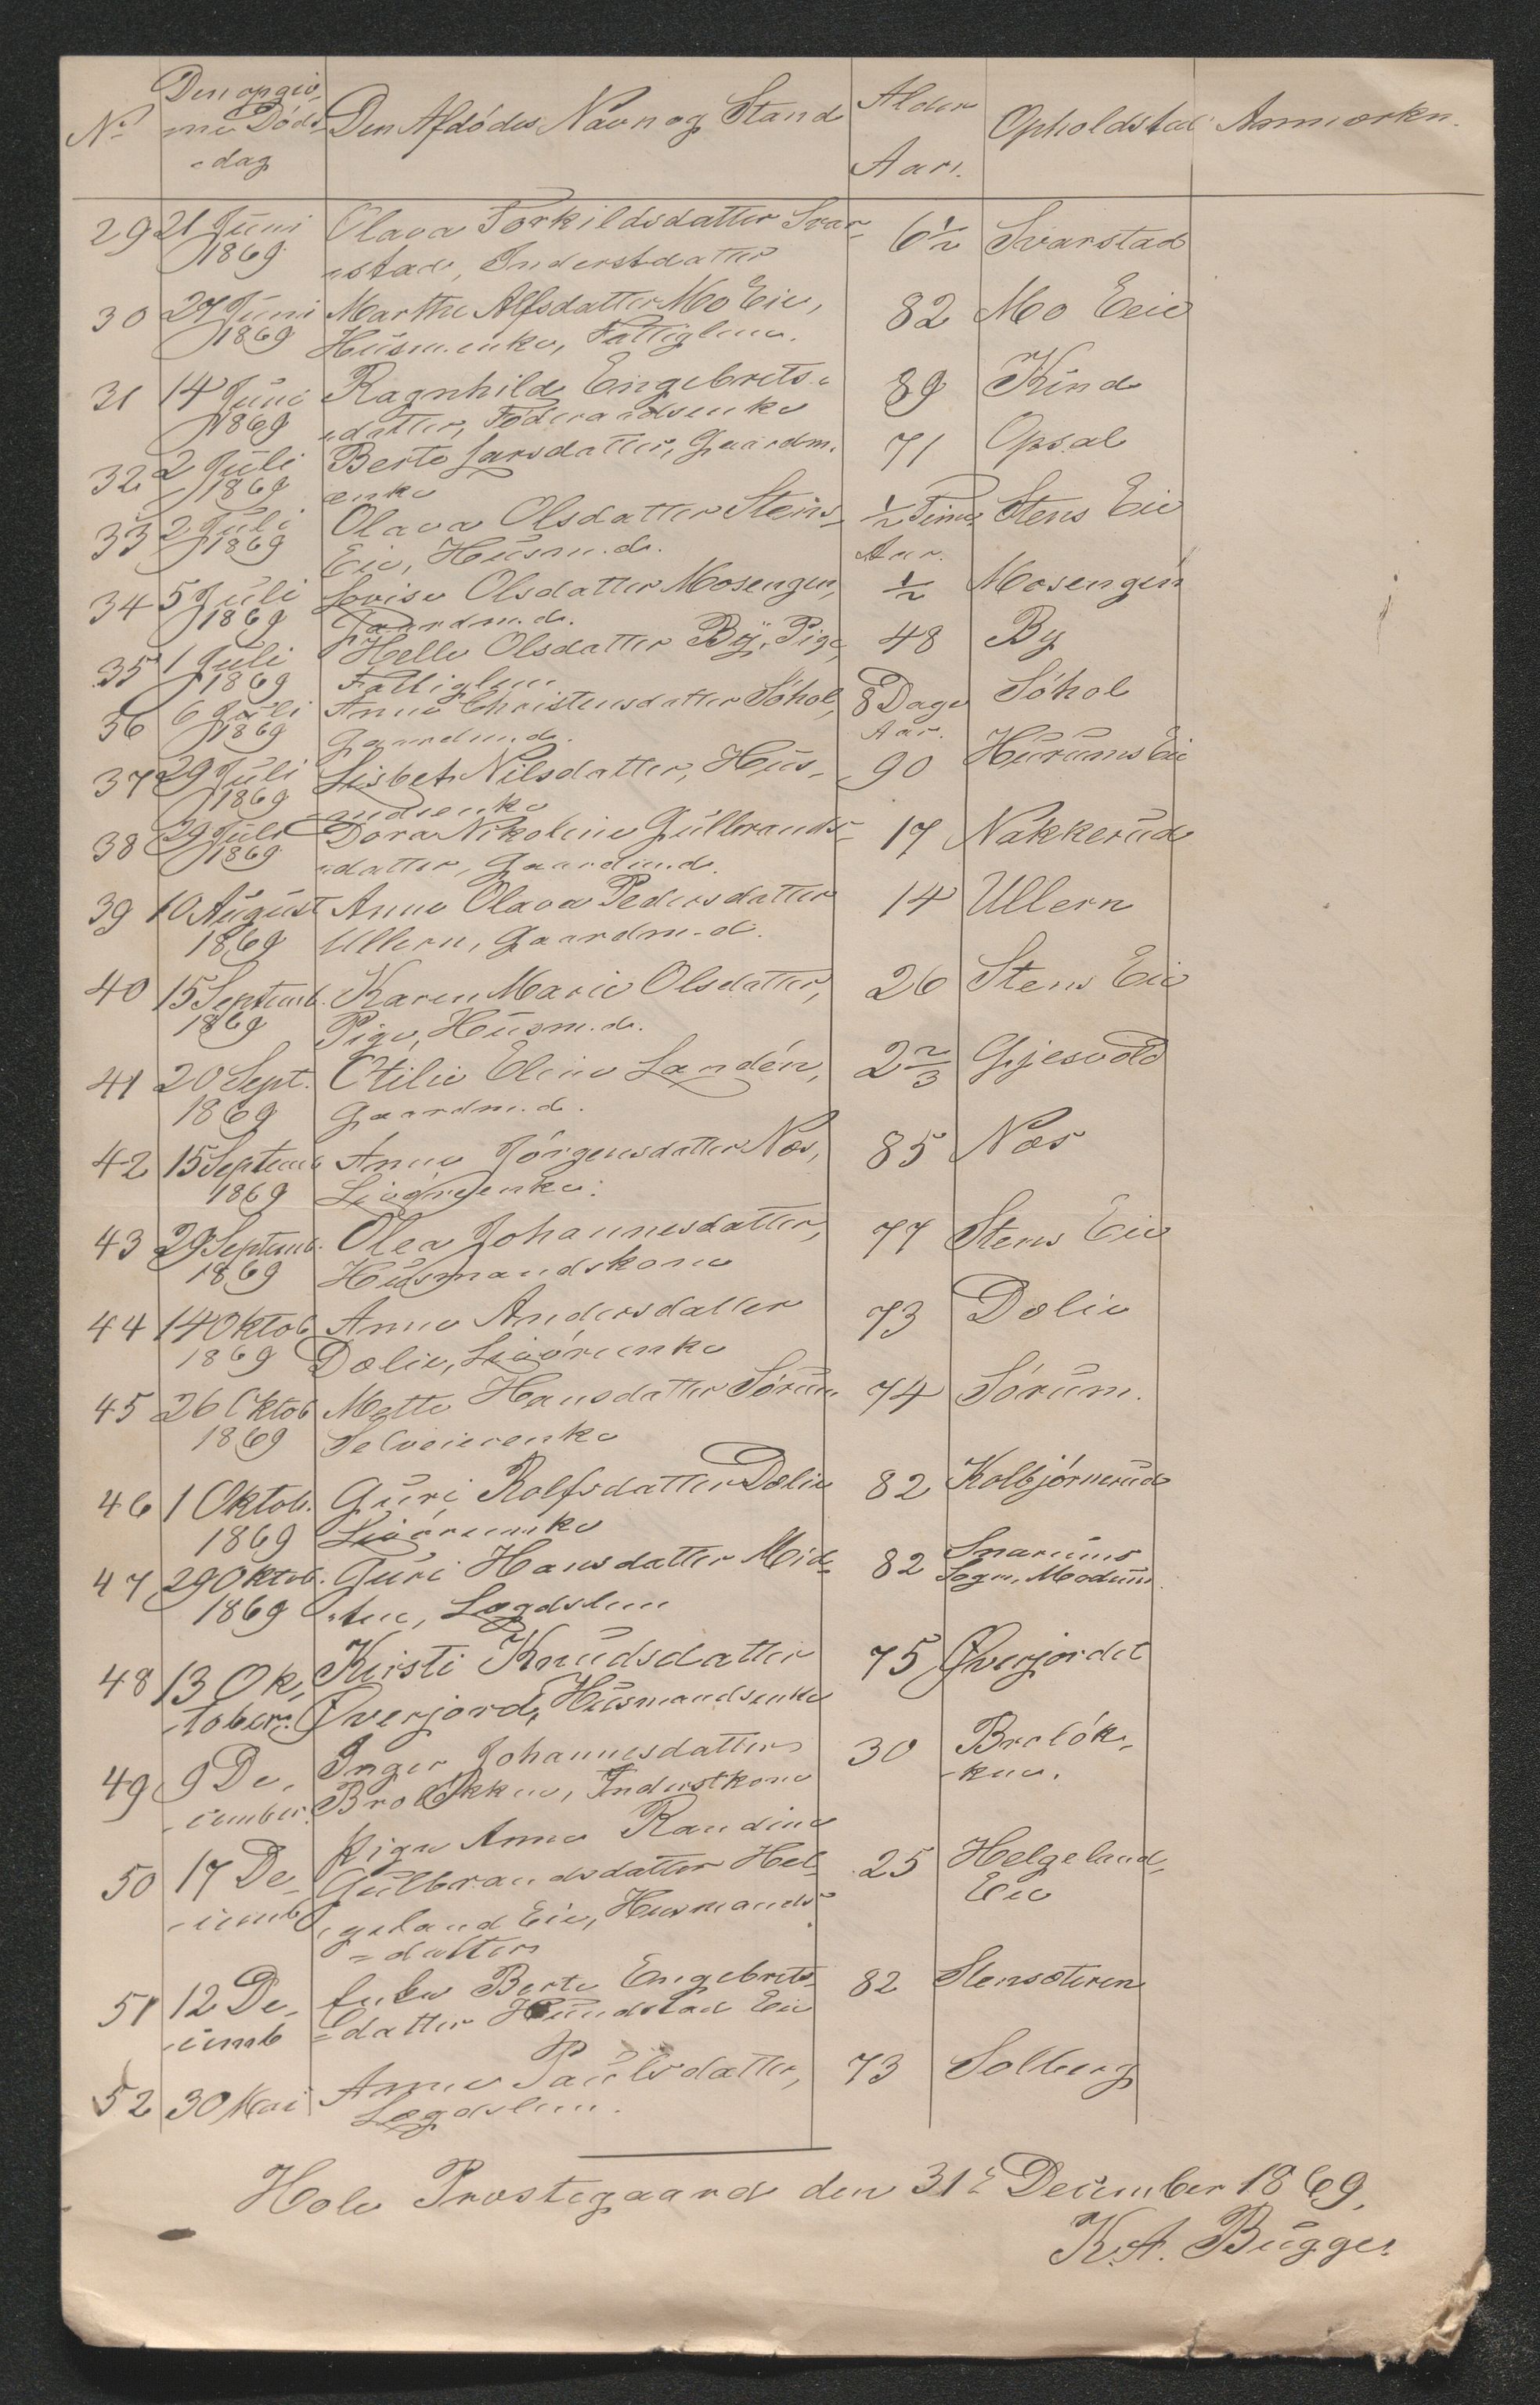 No Den opgiv- Den Afdødes Navn og Stand Alder Opholdsted Anmærkn.
ne Døds-
-dag Aar.
29 21 Juni Olava Torkildsdatter Svar- 6½ Svarstad
1869 -stad, Inderstdatter
30 27 Juni Marthe Alfsdatter Mo Eie, 82 Mo Eeie
1869 Husm.enke, Fattiglem.
31 14 Juni Ragnhild Engebrets- 89 Kind
1869 -datter, Føderaadsenke
32 2 Juli Berte Larsdatter, Gaardm. 71 Opsal
1869 enke
33 2 Juli Olava Olsdatter Stens ½ Time Stens Eie
1869 Eie, Husm.d. Aar.
34 5 Juli Lovise Olsdatter Mosengen, ½ Mosengen
1869 Gaardm.d.
35 1 Juli Helle Olsdatter By, Pige, 48 By
1869 Fattiglem
36 6 Juli Anne Christensdatter Søhol, 8 Dage Søhol
1869 Gaardm.d. Aar.
37 29 Juli Lisbet Nilsdatter, Hus- 90 Hurums Eie
1869 -mdsenke
38 29 Juli Dora Nikoline Gulbrands- 17 Nakkerud
1869 -datter, Gaardm.d.
39 10 August Anne Olava Pedersdatter 14 Ullern
1869 Ullern, Gaardm.d.
40 15 Septemb. Karen Marie Olsdatter, 26 Stens Eie
1869 Pige, Husm.d.
41 20 Sept. Otilie Eline Landén, 2⅔ Gjesvold
1869 Gaardm.d.
42 15 Septemb Anne Jörgensdatter Næs, 85 Næs
1869 Livørenke.
43 29 Septemb. Olea Johannesdatter, 77 Stens Eie
1869 Husmandskone
44 14 Oktob Anne Andersdatter 73 Dælie
1869 Dælie, Livörenke
45 26 Oktob Mette Hansdatter Sörum 74 Sörum.
1869 Selveierenke
46 1 Oktob. Guri Rolfsdatter Dælie 82 Kolbjørnerud
1869 Livörenke
47 29 Oktob. Guri Hansdatter Mid- 82 Snarums
1869 , Lægdslem Sogn, Modum.
48 13 Ok- Kirsti Knudsdatter 75 Øverjordet
-tober. Øverjord, Husmandsenke
49 9 De- Inger Johannesdatter 30 Broløk-
-cember. Broløkken, Inderstkone -ken.
50 17 De- Pige Anne Randine 25 Helgeland,
-cemb Gulbrandsdatter Hel- Eie
-geland Eie, Husmands-
-datter
51 12 De- Enke Berte Engebrets- 82 Stensæteren
-cemb -datter Hundstad Eie
52 30 Mai Anne Paulsdatter, 73 Solberg
Lægdslem.
Hole Præstegaard den 31te December 1869.
K.A. Bugge.